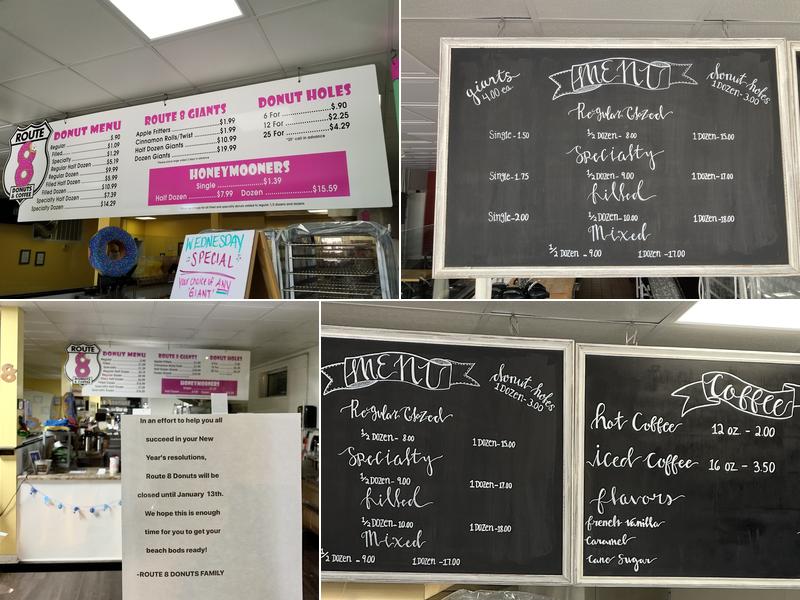 ROUTE
8
DONUTS
& COFFEE
DONUT MENU
Regular $.90
Filled $1.09
Specialty $1.29
Regular Half Dozen $5.19
Regular Dozen $9.99
Filled Half Dozen $5.99
Filled Dozen $10.99
Specialty Half Dozen $7.39
Specialty Dozen $14.29
ROUTE 8 GIANTS
Apple Fritters $1.99
Cinnamon Rolls/Twist $1.99
Half Dozen Giants $10.99
Dozen Giants $19.99
DONUT HOLES
6 For $.90
12 For $2.25
25 For $4.29
*25* call in advance
HONEYMOONERS
Single $1.39
Half Dozen $7.99 Dozen $15.59
WEDNESDAY
SPECIAL
YOUR CHOICE OF ANY
"GIANT"
giants
4.00 ea.
MENU
donut holes
1 Dozen - 3.00
Regular Glazed
Single - 1.50 ½ Dozen - 8.00 1 Dozen - 15.00
Specialty
Single - 1.75 ½ Dozen - 9.00 1 Dozen - 17.00
filled
Single - 2.00 ½ Dozen - 10.00 1 Dozen - 18.00
Mixed
½ Dozen - 9.00 1 Dozen - 17.00
ROUTE
8
DONUT MENU
ROUTE 8 GIANTS
DONUT HOLES
HONEYMOONERS
8
In an effort to help you all
succeed in your New
Year's resolutions,
Route 8 Donuts will be
closed until January 13th.
We hope this is enough
time for you to get your
beach bods ready!
-ROUTE 8 DONUTS FAMILY
MENU
donut holes
1 Dozen - 3.00
Regular Glazed
½ Dozen - 8.00 1 Dozen - 15.00
Specialty
½ Dozen - 9.00 1 Dozen - 17.00
filled
½ Dozen - 10.00 1 Dozen - 18.00
Mixed
½ Dozen - 9.00 1 Dozen - 17.00
Coffee
hot Coffee 12 oz. - 2.00
iced Coffee 16 oz - 3.50
flavors
french vanilla
Caramel
Cane Sugar